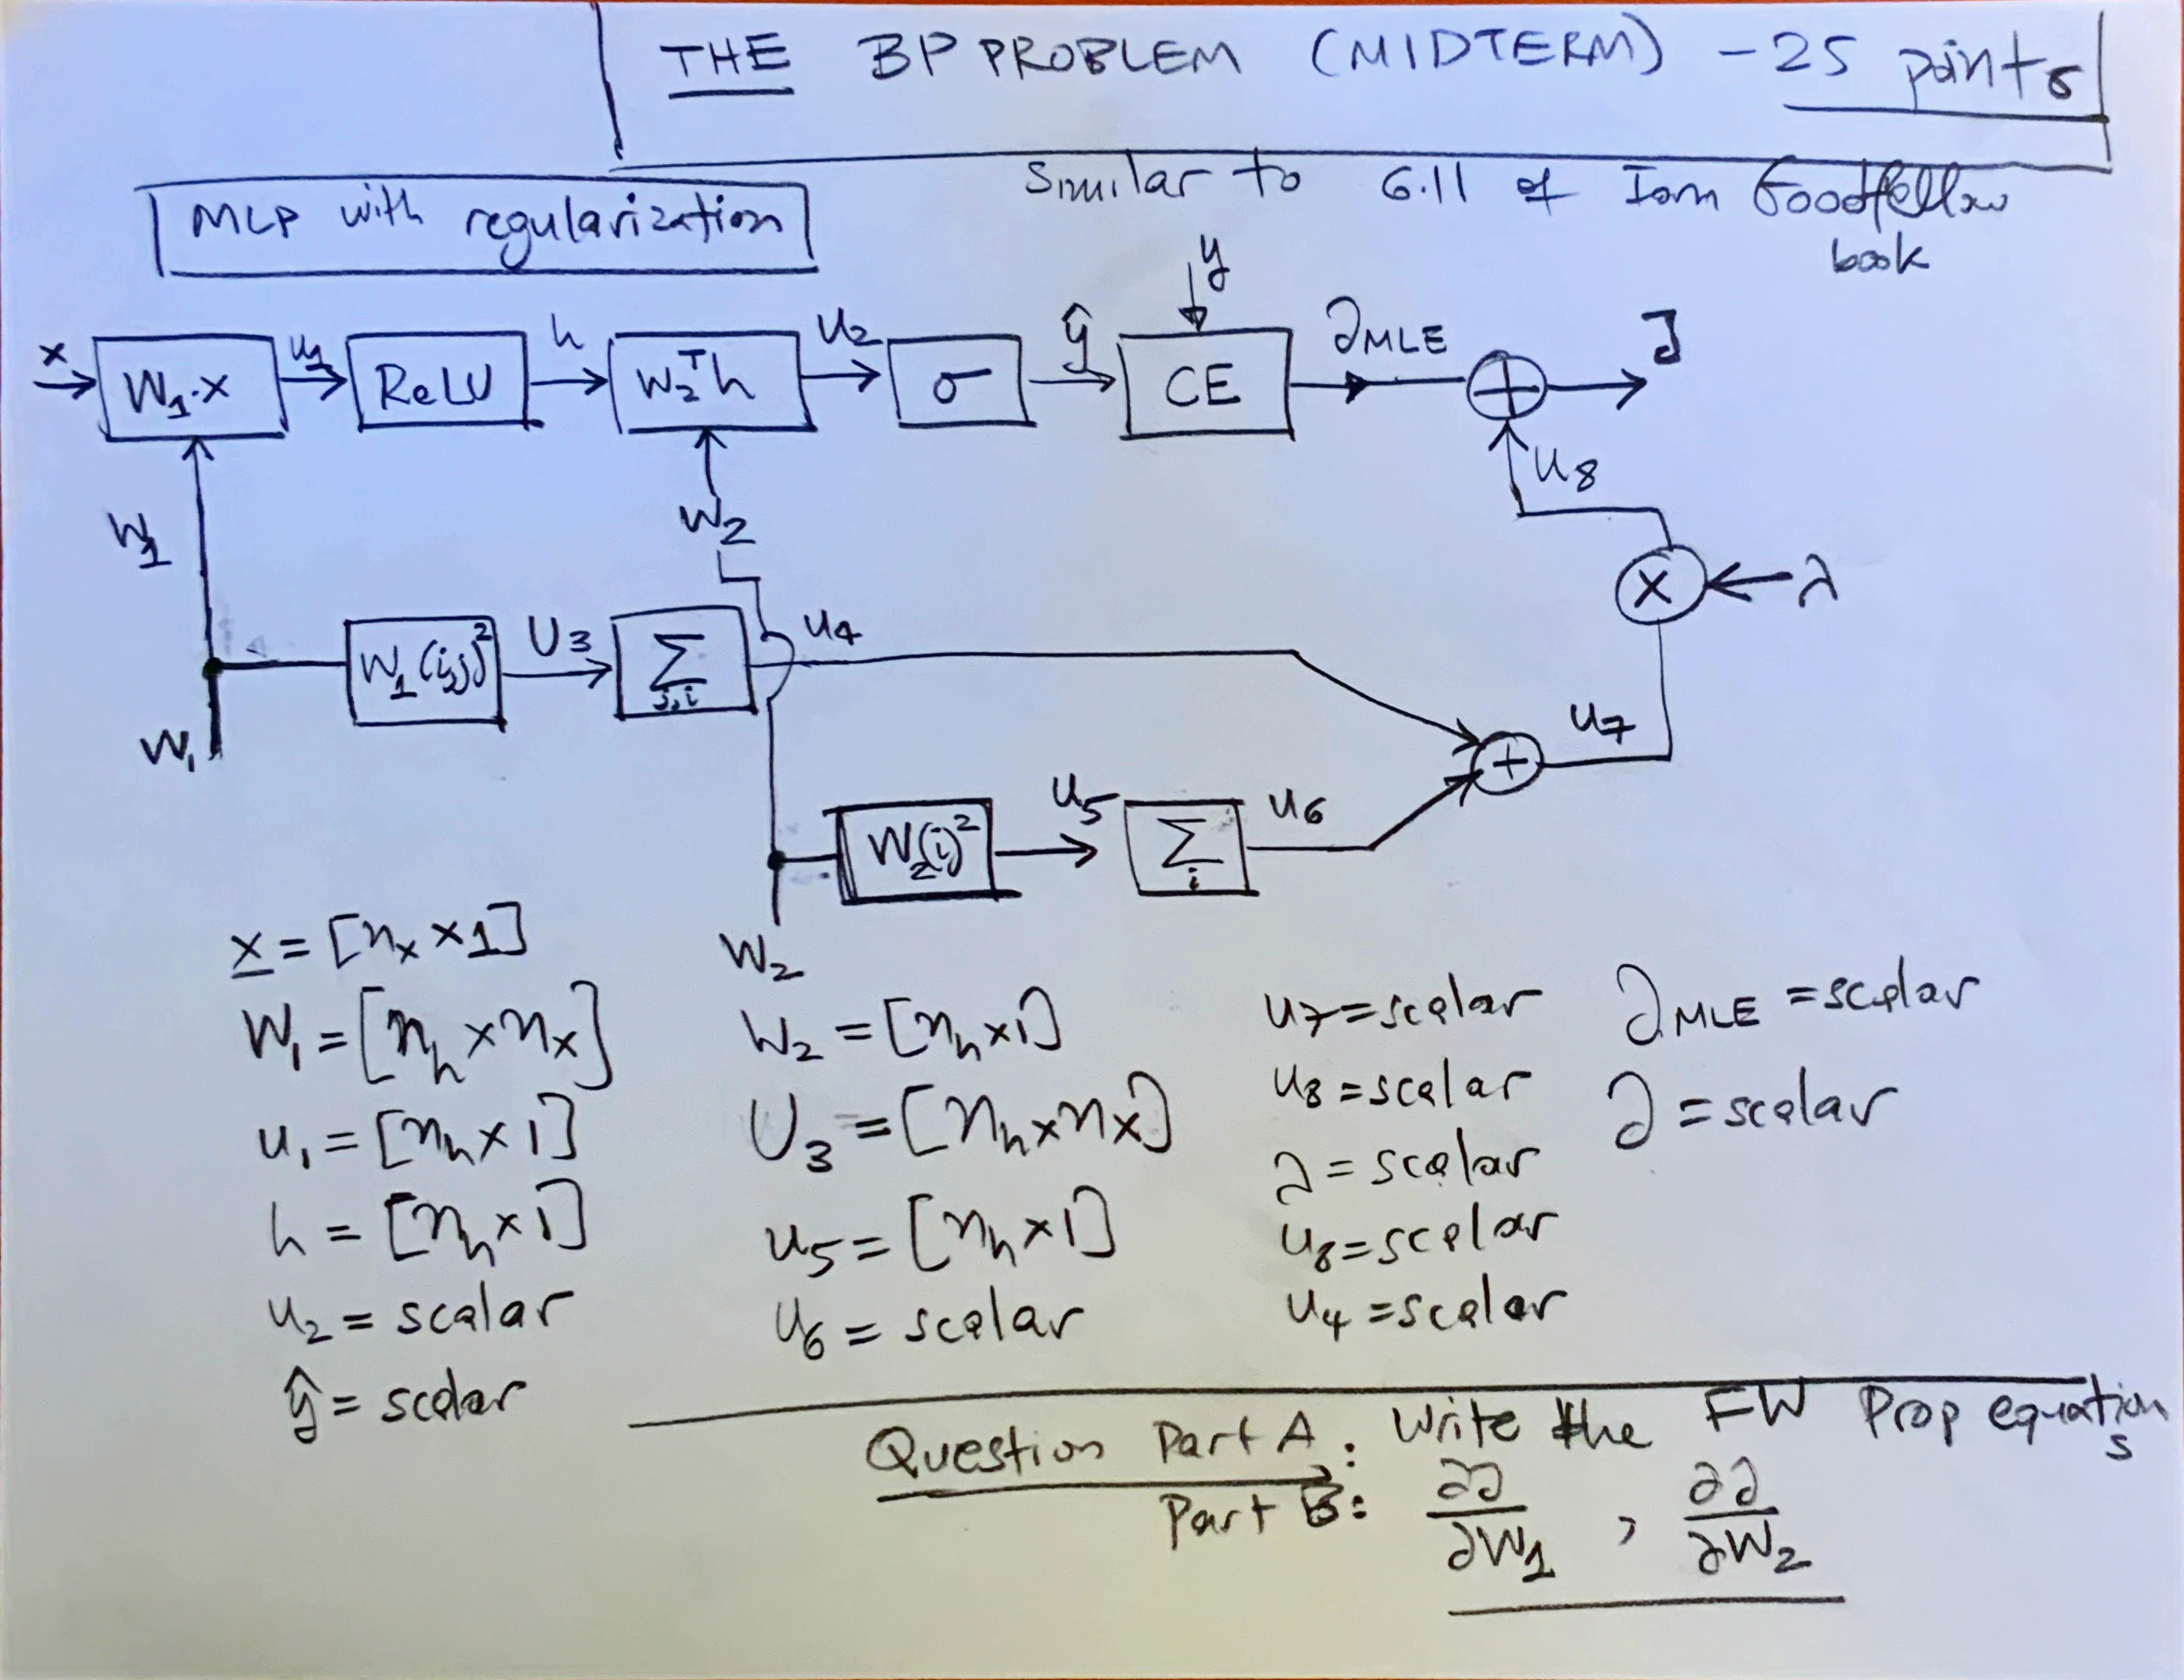 THE BP PROBLEM (MIDTERM) - 25 points
Similar to 6.11 of Ian Goodfellow
book
MLP with regularization
y
x W₁·x u₁ ReLU h W₂ᵀh u₂ σ ŷ CE J_MLE + J
u₈
W₁ W₂
× λ
W₁(i,j)² U₃ Σ j,i u₄
W₁
+ u₇
W₂(i)² u₅ Σ i u₆
W₂
x = [nₓ × 1]
W₁ = [nₕ × nₓ]
u₁ = [nₕ × 1]
h = [nₕ × 1]
u₂ = scalar
ŷ = scalar
W₂ = [nₕ × 1]
U₃ = [nₕ × nₓ]
u₅ = [nₕ × 1]
u₆ = scalar
u₇ = scalar
u₈ = scalar
λ = scalar
u₈ = scalar
u₄ = scalar
J_MLE = scalar
J = scalar
Question Part A: Write the FW Prop equations
Part B: ∂J/∂W₁ , ∂J/∂W₂